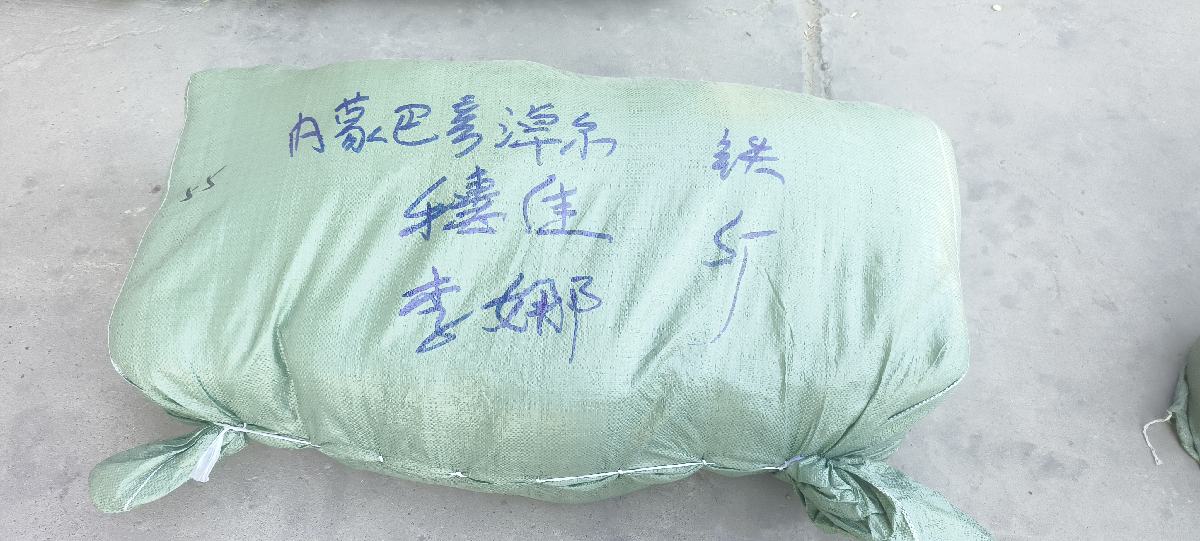 内蒙巴彦淖尔
穗佳
李娜
铁
55